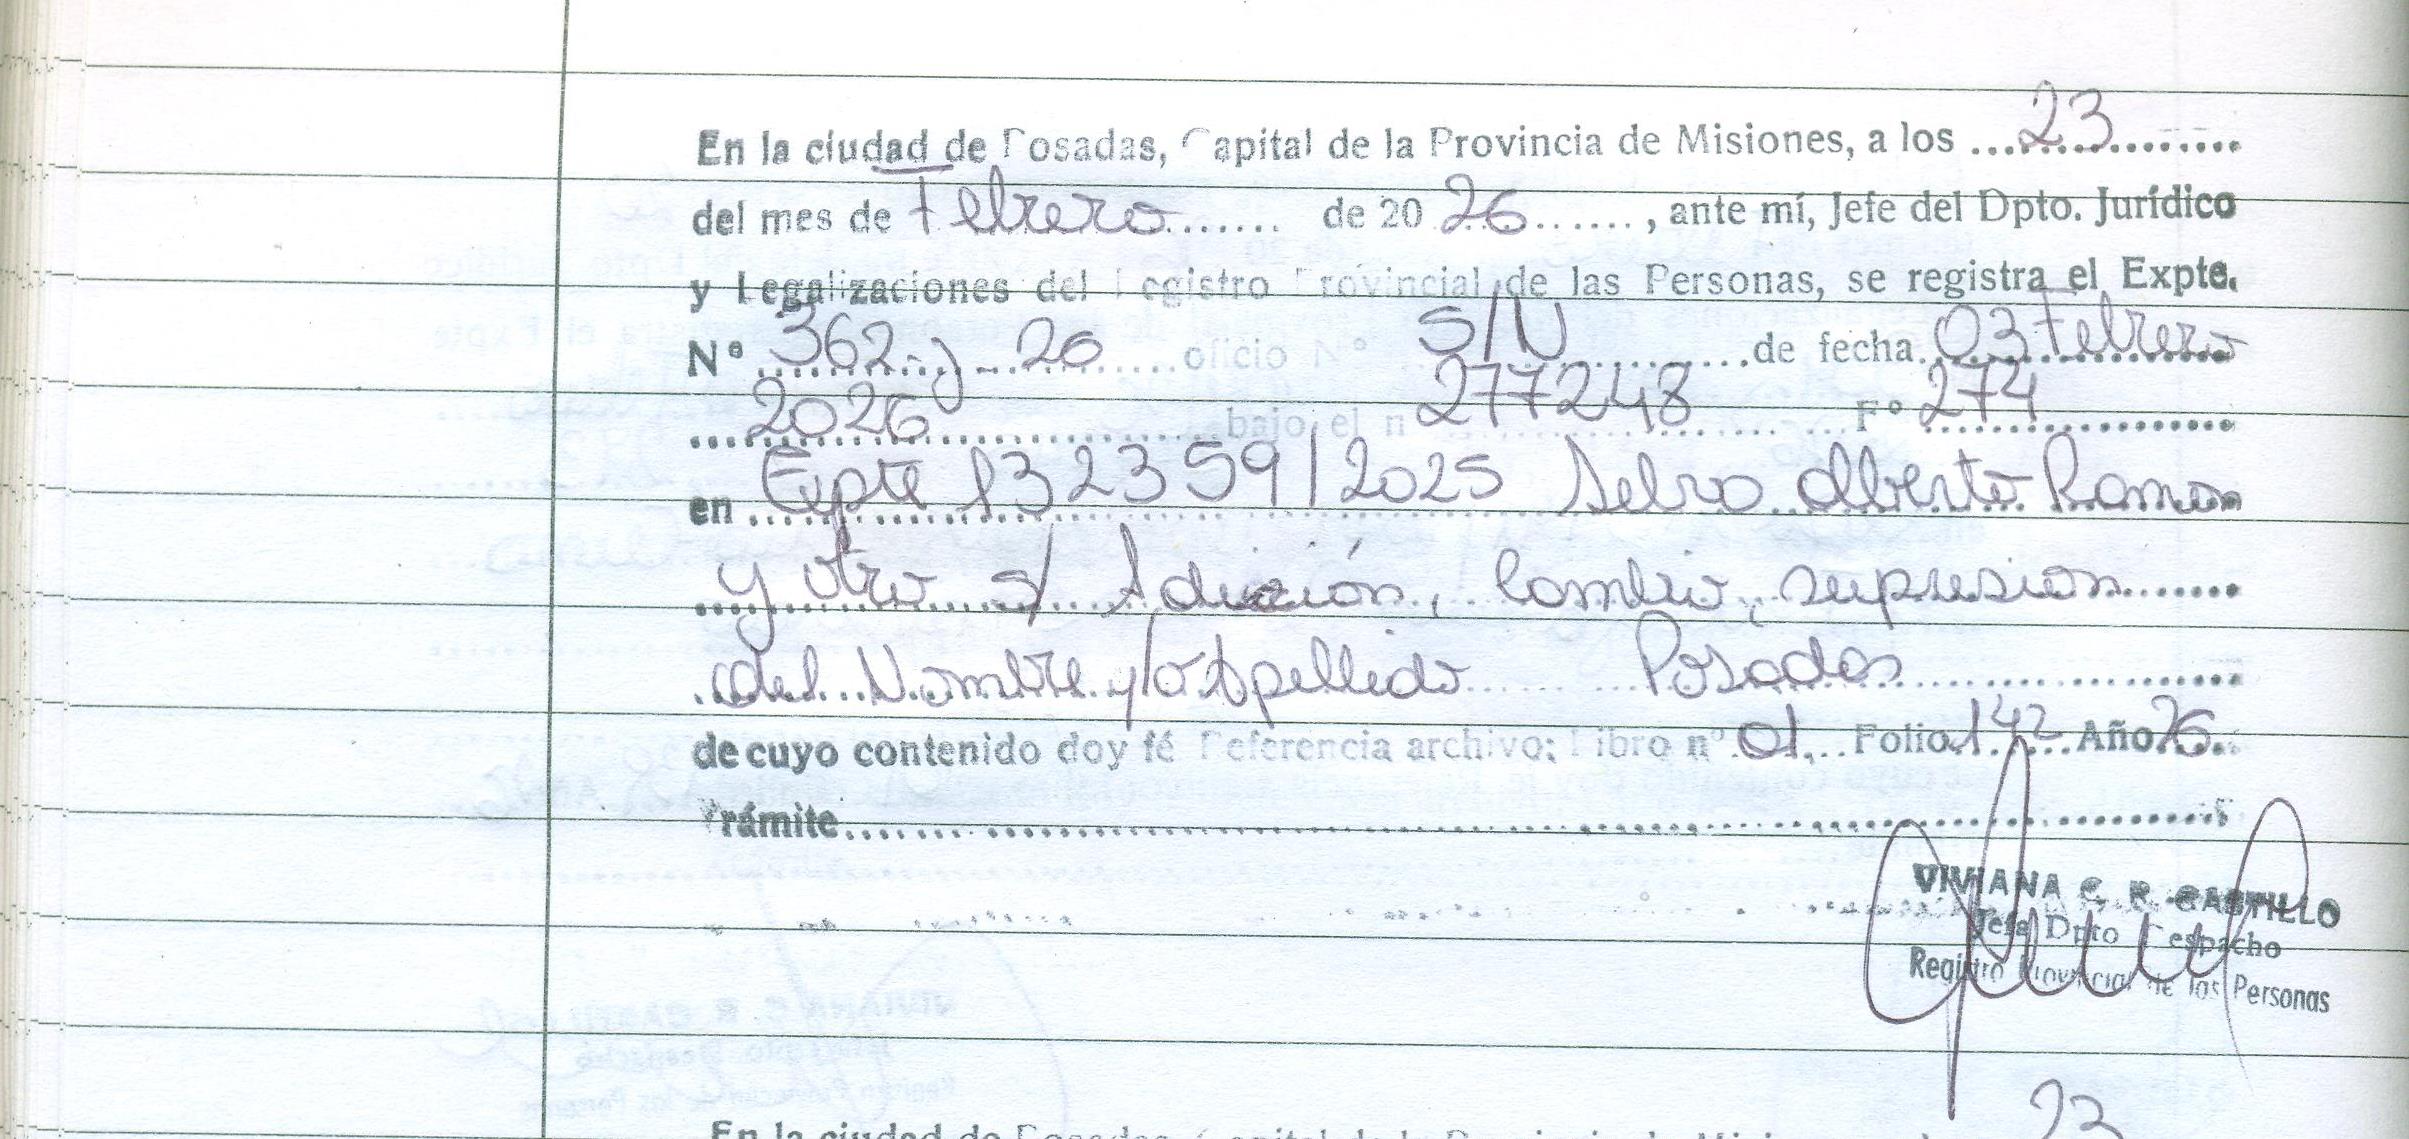 En la ciudad de Posadas, Capital de la Provincia de Misiones, a los 23
del mes de Febrero de 20 26, ante mí, Jefe del Dpto. Jurídico
y Legalizaciones del Registro Provincial de las Personas, se registra el Expte.
Nº 362-J-26 oficio Nº S/N de fecha 03 Febrero
2026 bajo el n 277248 Fº 274
en Expte 132359/2025 Selvo Alberto Ramon
y otro s/ Adición, Cambio, supresion
del Nombre y/o Apellido Posadas
de cuyo contenido doy fé Referencia archivo: Libro nº 01, Folio 142 Año 26.
Trámite
VIVIANA C. R. CASTILLO
Jefa Dpto Despacho
Registro Provincial de las Personas
23
En la ciudad de Posadas, Capital de la Provincia de Misiones